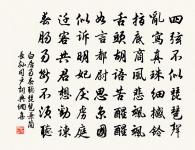 四弦不似琵琶聲
亂寫真珠細撼鈴
指底商風悲颯颯
舌頭胡語苦醒醒
如言都尉思京國
似訴明妃厭虜庭
遷客共君想勸諫
春腸易斷不須聽
白居易春聽琵琶兼簡
長孫司戶